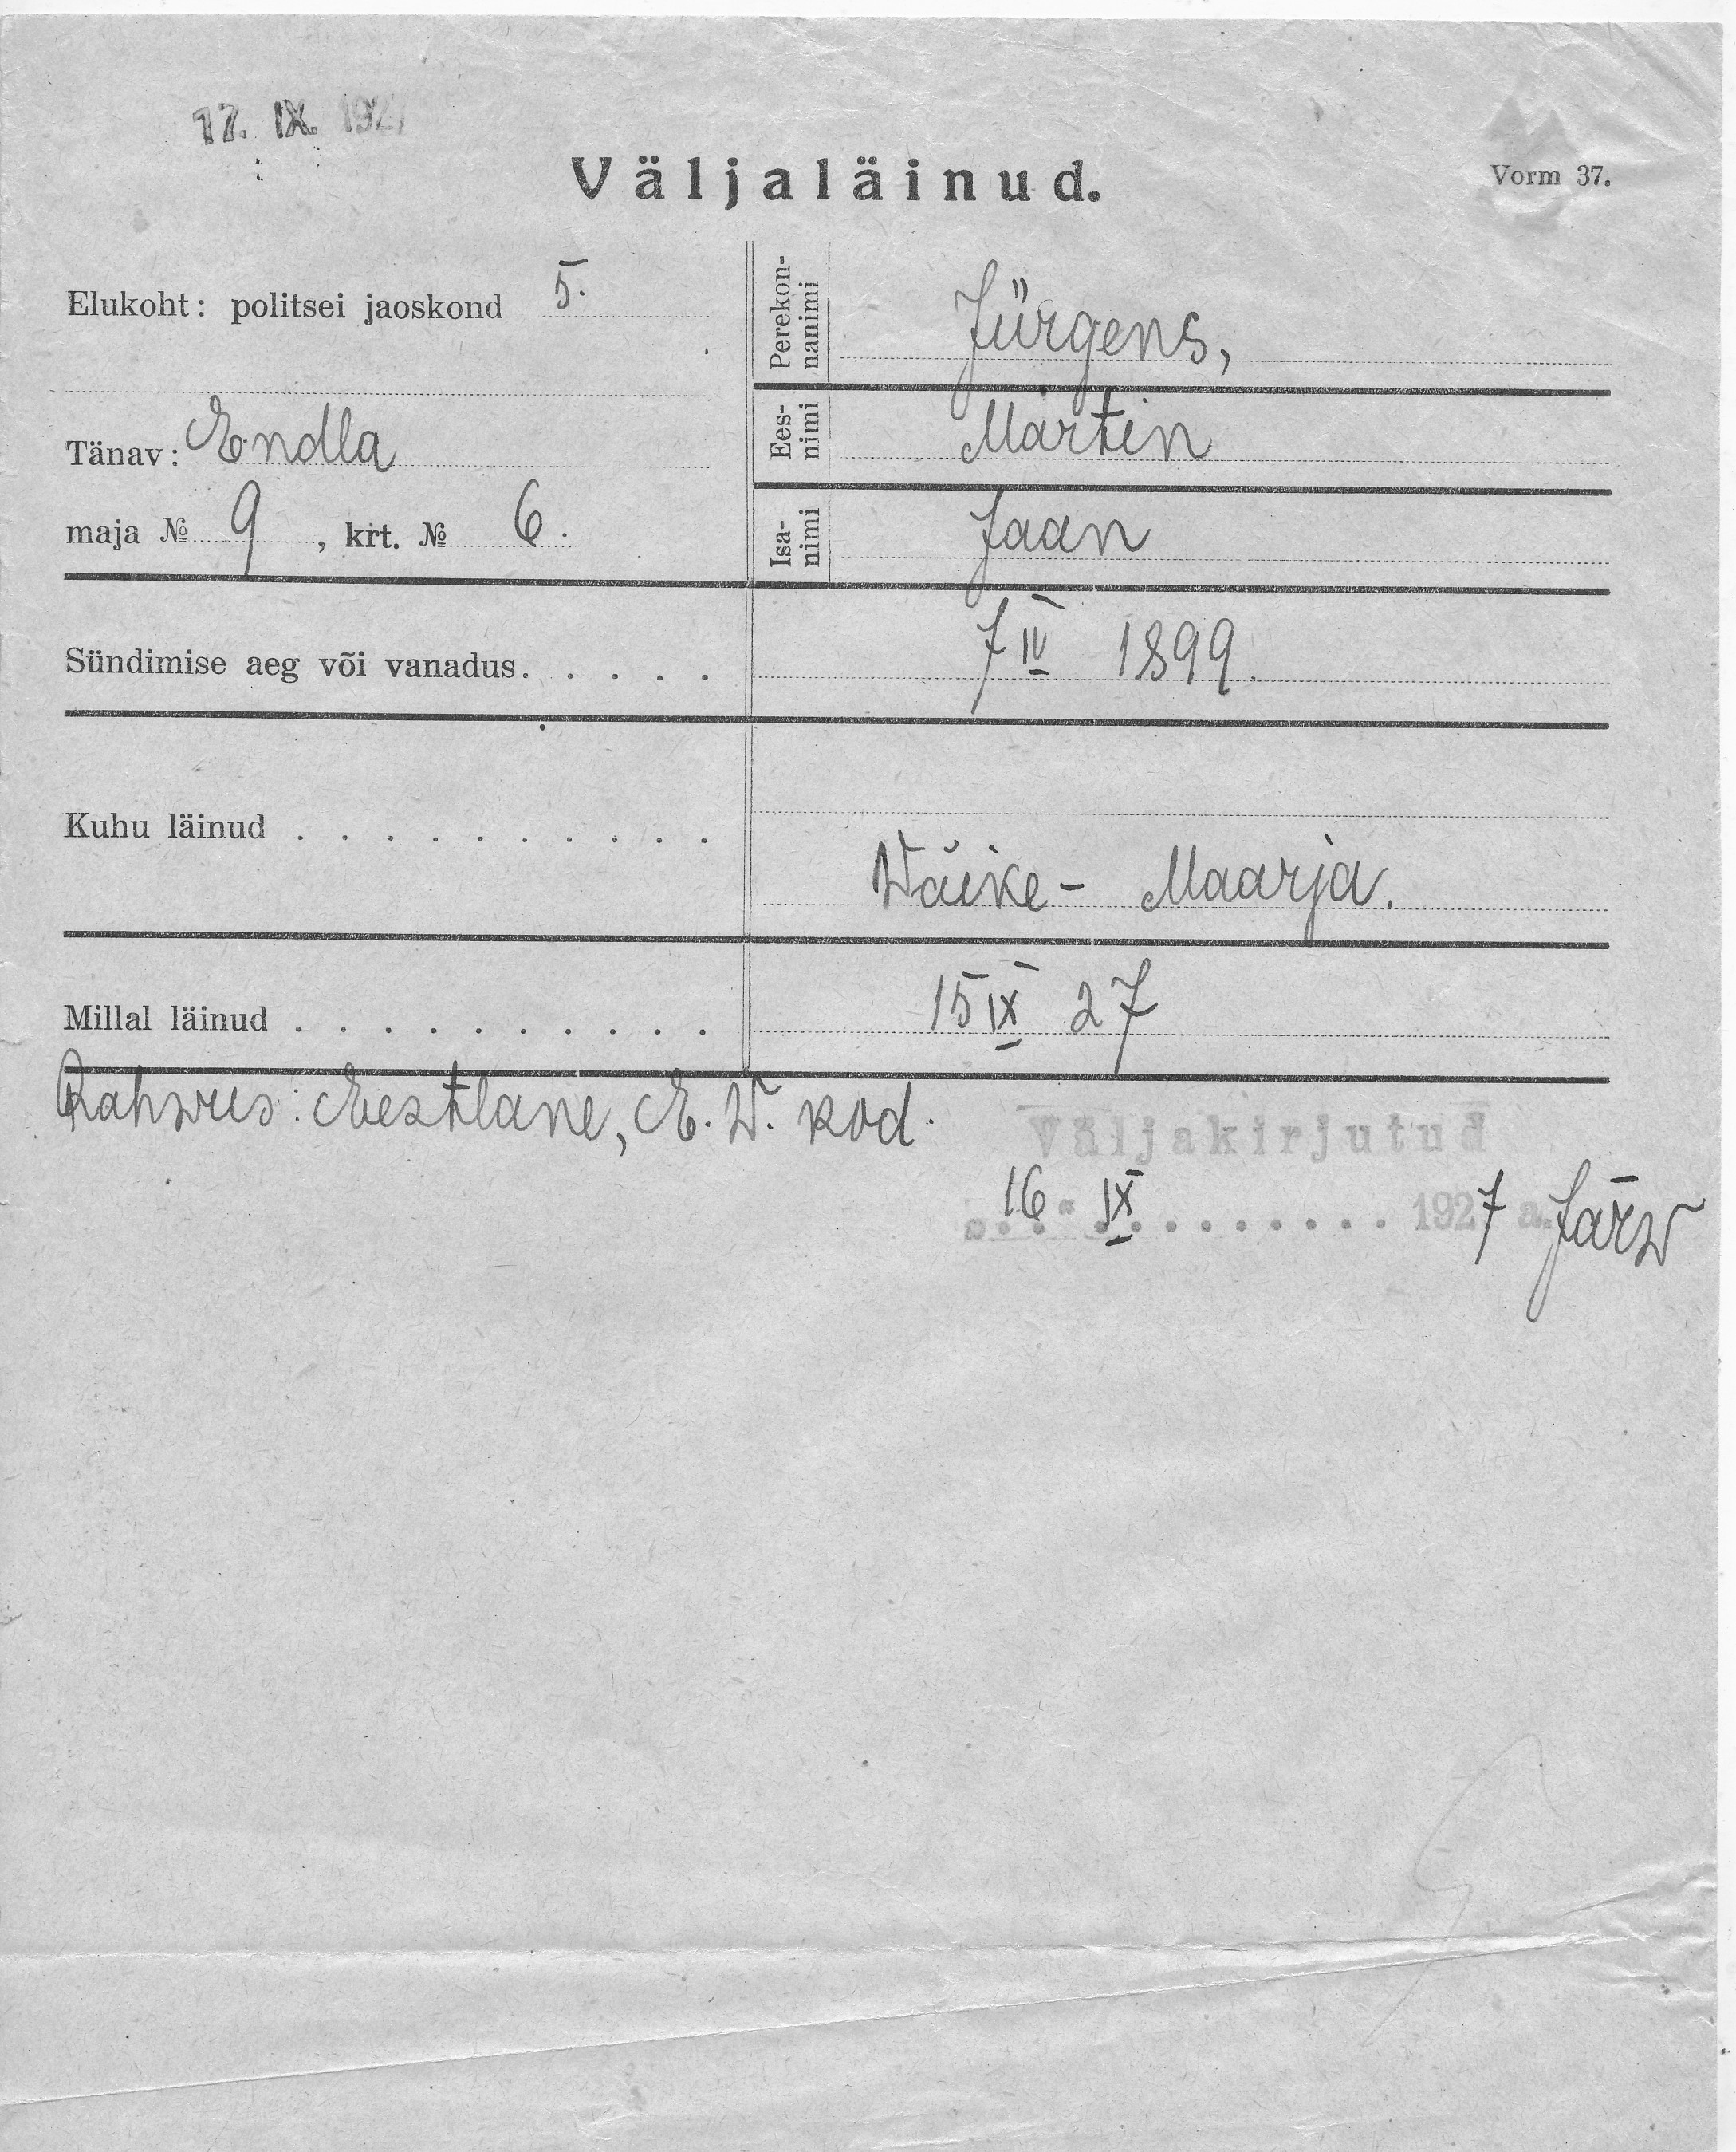 17. IX. 192
Väljaläinud.
Vorm 37.
Elukoht: politsei jaoskond 5.
Tänav: Endla
maja № 9, krt. № 6.
Perekon-
nanimi
Jürgens,
Ees-
nimi
Martin
Isa-
nimi
Jaan
Sündimise aeg või vanadus. . . . . 7 IV 1899.
Kuhu läinud . . . . . . . . . .
Wäike- Maarja.
Millal läinud . . . . . . . . . . 15 IX 27
Rahwus: Eestlane, E. W. kod.
Väljakirjutud
16 IX 1927 a. Järw